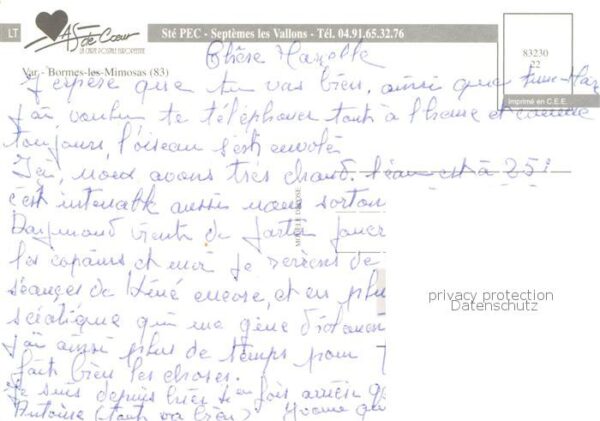 LT
As de Cœur
LA CARTE POSTALE EUROPÉENNE
Sté PEC - Septèmes les Vallons - Tél. 04.91.65.32.76
83230
22
Imprimé en C.E.E.
Var - Bormes-les-Mimosas (83)
Chère
J'espère que tu vas bien, ainsi que
J'ai voulu te téléphoner tout à l'heure et comme
toujours, l'oiseau s'est envolé
Ici, nous avons très chaud. l'eau est à 25°
c'est intenable aussi nous sorton
Raymond vient de partir jouer
les copains, et moi je reviens de
séances de Kiné encore, et en plu
sciatique qui me gêne
J'ai ainsi plus de temps pour
faire bien les choses.
Je suis depuis hier
Antoine (tout va bien) Yvonne
MODÈLE DÉPOSÉ
privacy protection
Datenschutz